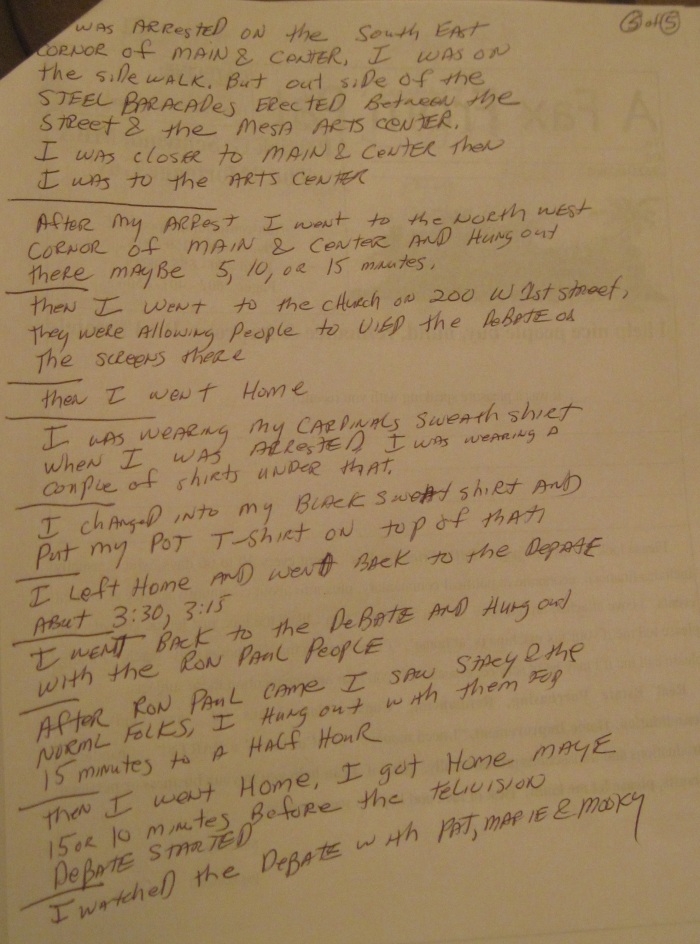 3 of 5
WAS ARRESTED ON the South EAST
CORNOR of MAIN & CENTER. I WAS ON
the SiDE WALK. But out SiDE of the
STEEL BARACADES ERECTED BETWEEN the
STREET & the MESA ARTS CENTER.
I WAS CLOSER to MAIN & CENTER then
I WAS to the ARTS CENTER
AFTER my ARREST I went to the NORTH WEST
CORNOR of MAIN & CENTER AND Hung out
there MAYBE 5, 10, or 15 minutes.
then I WENT to the church on 200 W 1st street,
they WERE Allowing People to VIED the DEBATE on
The SCREENS there
then I went Home
I WAS WEARING my CARDINALS Sweath shirt
WHEN I WAS ARRESTED, I WAS WEARING A
couple of shirts UNDER that.
I changed into my BLACK Sweat shirt AND
Put my POT T-Shirt ON top of that
I Left Home AND went BACK to the DEBATE
ABut 3:30, 3:15
I went BACK to the DEBATE AND Hung out
with the RON PAUL PEOPLE
AFTER RON PAUL CAME I SAW STACY & the
NORML FOLKS, I Hung out with them FOR
15 minutes to A HALF HOUR
then I went Home. I got Home MAYE
15 or 10 minutes BEFORE the TELIVISION
DEBATE STARTED
I WATCHED the DEBATE with PAT, MARIE & MOOKY